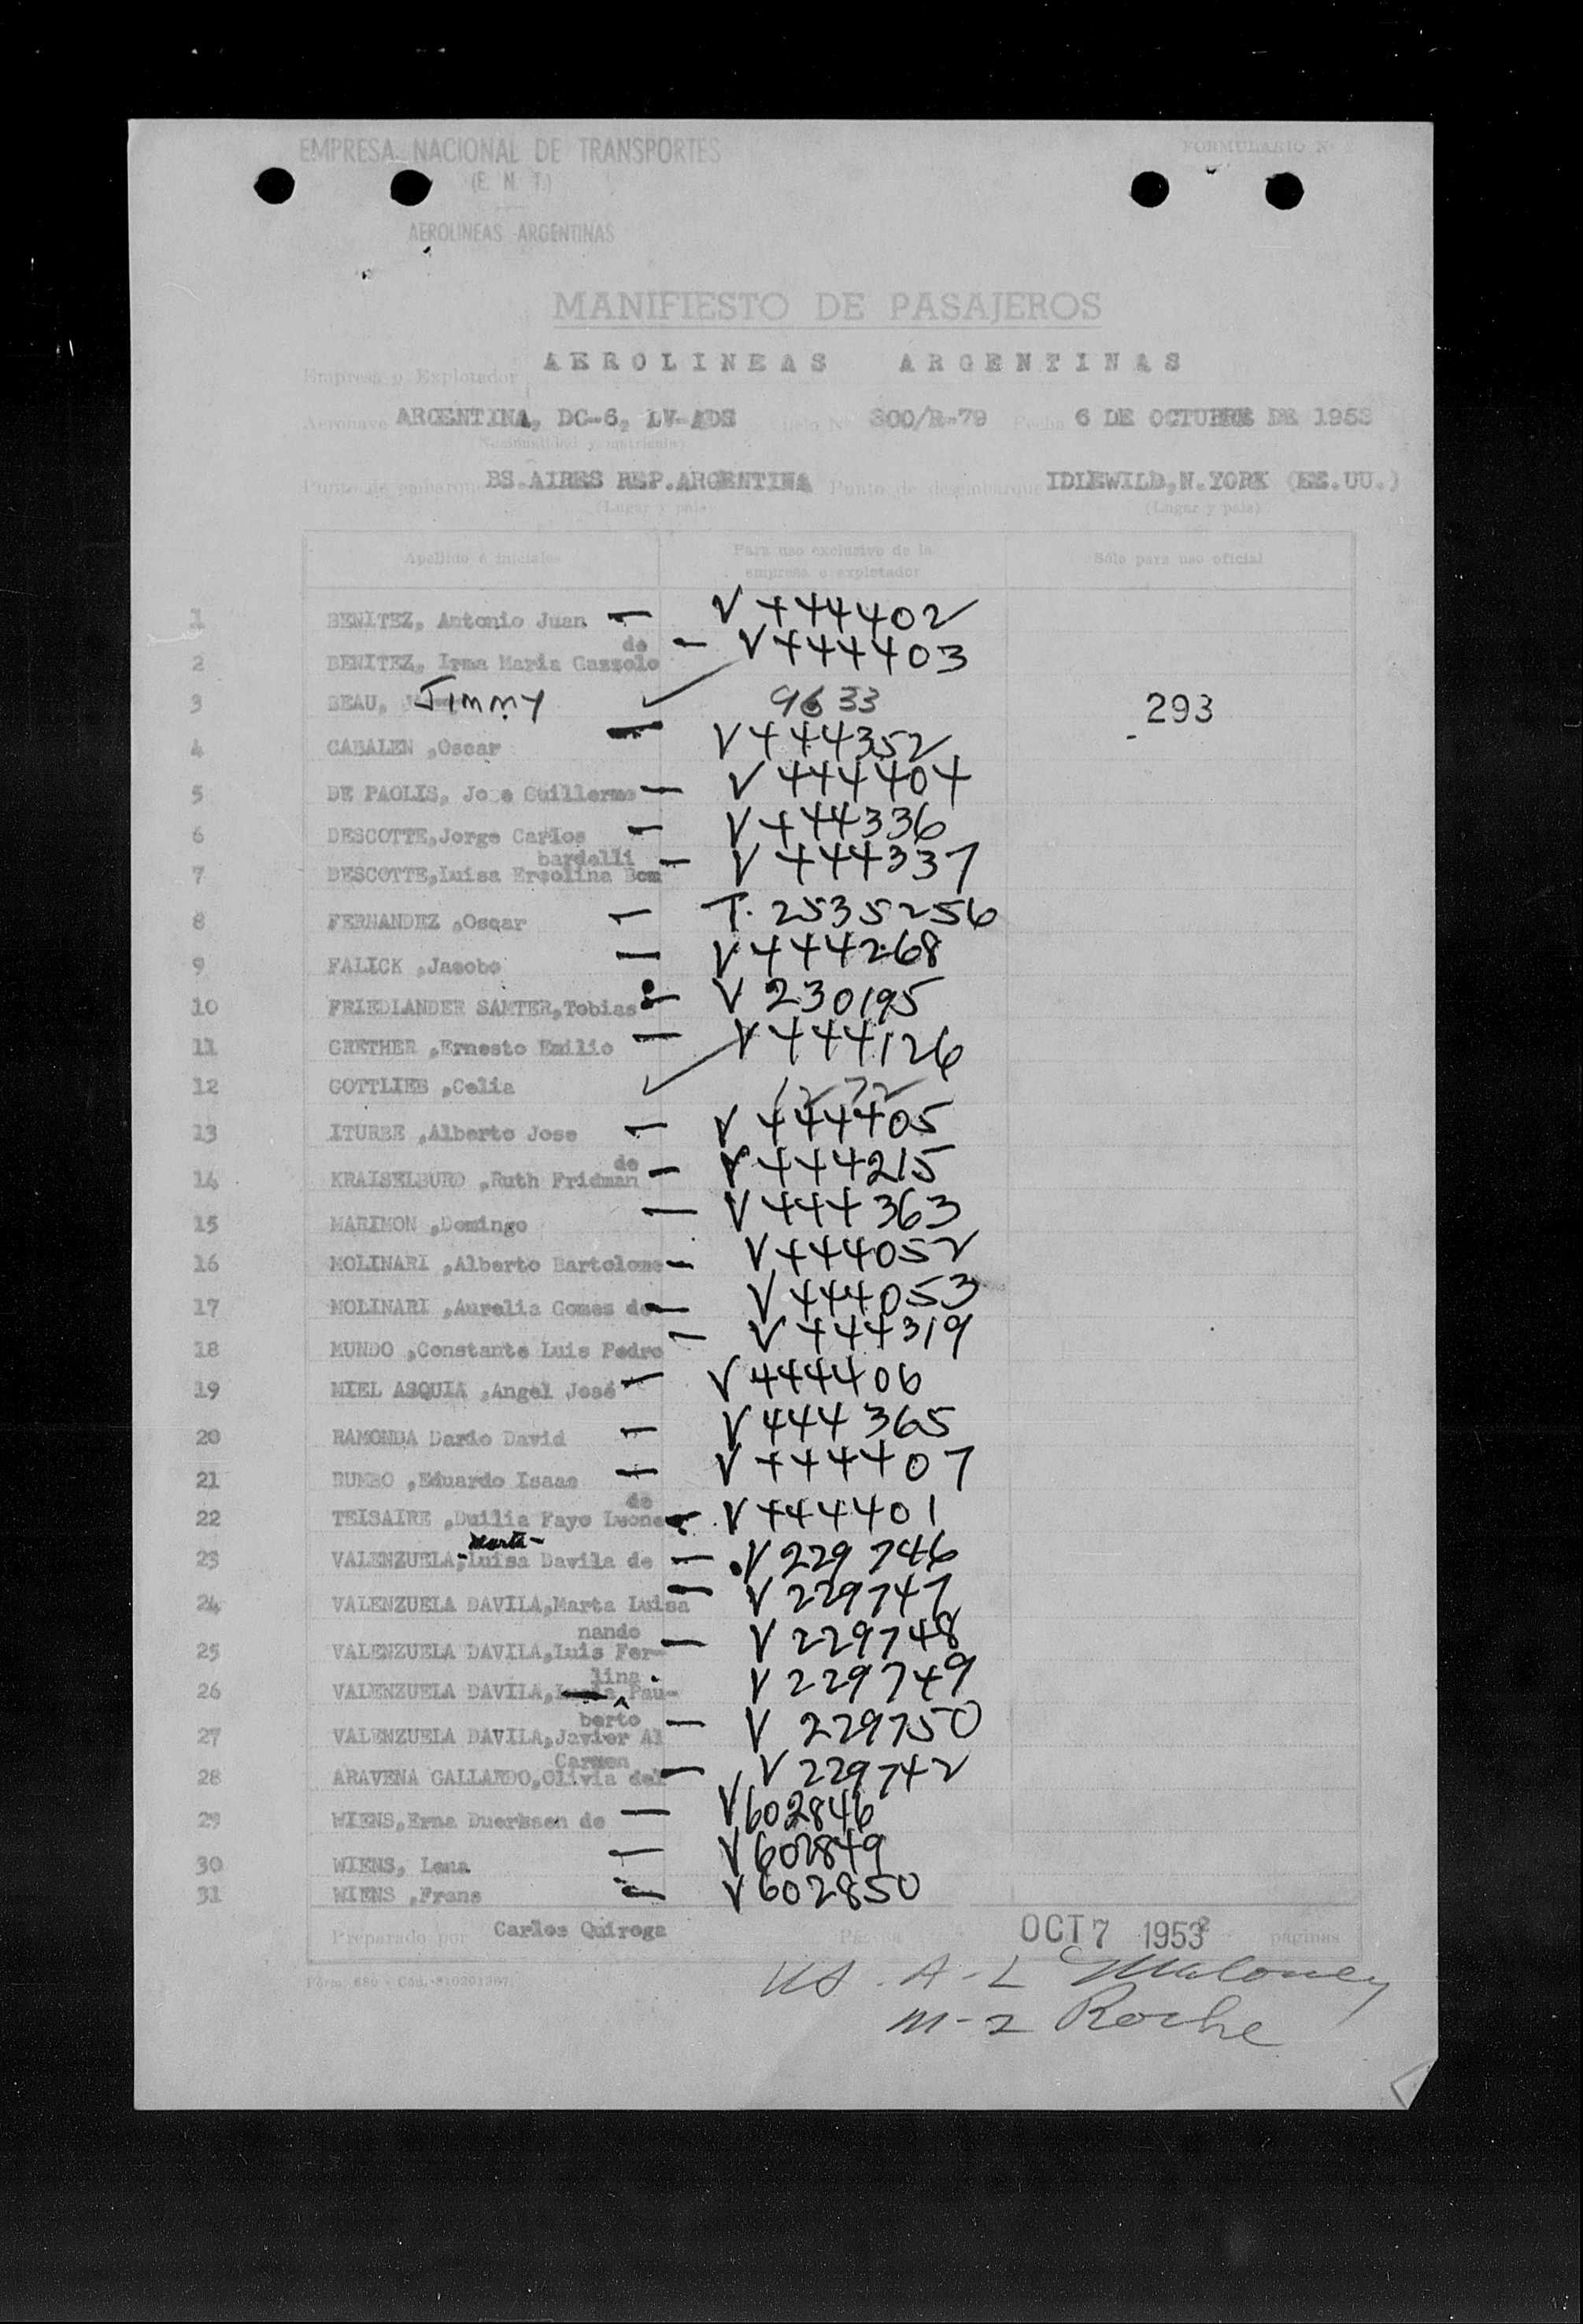 EMPRESA NACIONAL DE TRANSPORTES
FORMULARIO Nº
(E. N. T.)
AEROLINEAS ARGENTINAS
MANIFIESTO DE PASAJEROS
Empresa o Explotador AEROLINEAS ARGENTINAS
Aeronave ARGENTINA, DC-6, LV-ADS Vuelo Nº 300/R-79 Fecha 6 DE OCTUBRE DE 1953
(Nacionalidad y matrícula)
Punto de embarque BS.AIRES REP.ARGENTINA Punto de desembarque IDLEWILD,N.YORK (EE.UU.)
(Lugar y país) (Lugar y país)
Apellido é iniciales Para uso exclusivo de la empresa o explotador Sólo para uso oficial
1 BENITEZ, Antonio Juan — V444402
2 BENITEZ, Irma Maria Gazzolo de — V444403
3 BEAU, Jimmy ✓ 9633 293
4 CABALEN ,Oscar — V444352
5 DE PAOLIS, Jose Guillermo — V444404
6 DESCOTTE,Jorge Carlos — V444336
7 DESCOTTE,Luisa Ersolina Bom bardelli — V444337
8 FERNANDEZ ,Oscar — T. 2535256
9 FALICK ,Jacobo — V444268
10 FRIEDLANDER SAMTER,Tobias — V 230195
11 GRETHER ,Ernesto Emilio — V444126
12 GOTTLIEB ,Celia ✓ 1272
13 ITURBE ,Alberto Jose — V444405
14 KRAISELBURD ,Ruth Fridman de — V444215
15 MARIMON ,Domingo — V444363
16 MOLINARI ,Alberto Bartolome — V444052
17 MOLINARI ,Aurelia Gomes de — V444053
18 MUNDO ,Constante Luis Pedro — V444319
19 MIEL ASQUIA ,Angel José — V444406
20 RAMONDA Dario David — V444365
21 RUMBO ,Eduardo Isaac — V444407
22 TEISAIRE ,Duilia Fayo Leone de — V444401
23 VALENZUELA, Marta Luisa Davila de — V229746
24 VALENZUELA DAVILA,Marta Luisa — V229747
25 VALENZUELA DAVILA,Luis Fer- nando — V229748
26 VALENZUELA DAVILA, Pau- lina V229749
27 VALENZUELA DAVILA,Javier Al berto — V 229750
28 ARAVENA GALLARDO,Olivia del Carmen — V229742
29 WIENS,Erna Duerksen de — V602846
30 WIENS, Lena — V602849
31 WIENS ,Frans — V602850
Preparado por Carlos Quiroga Página OCT 7 1953 páginas
Form. 680 - Cód.
US. A-L Maloney
M-2 Roche